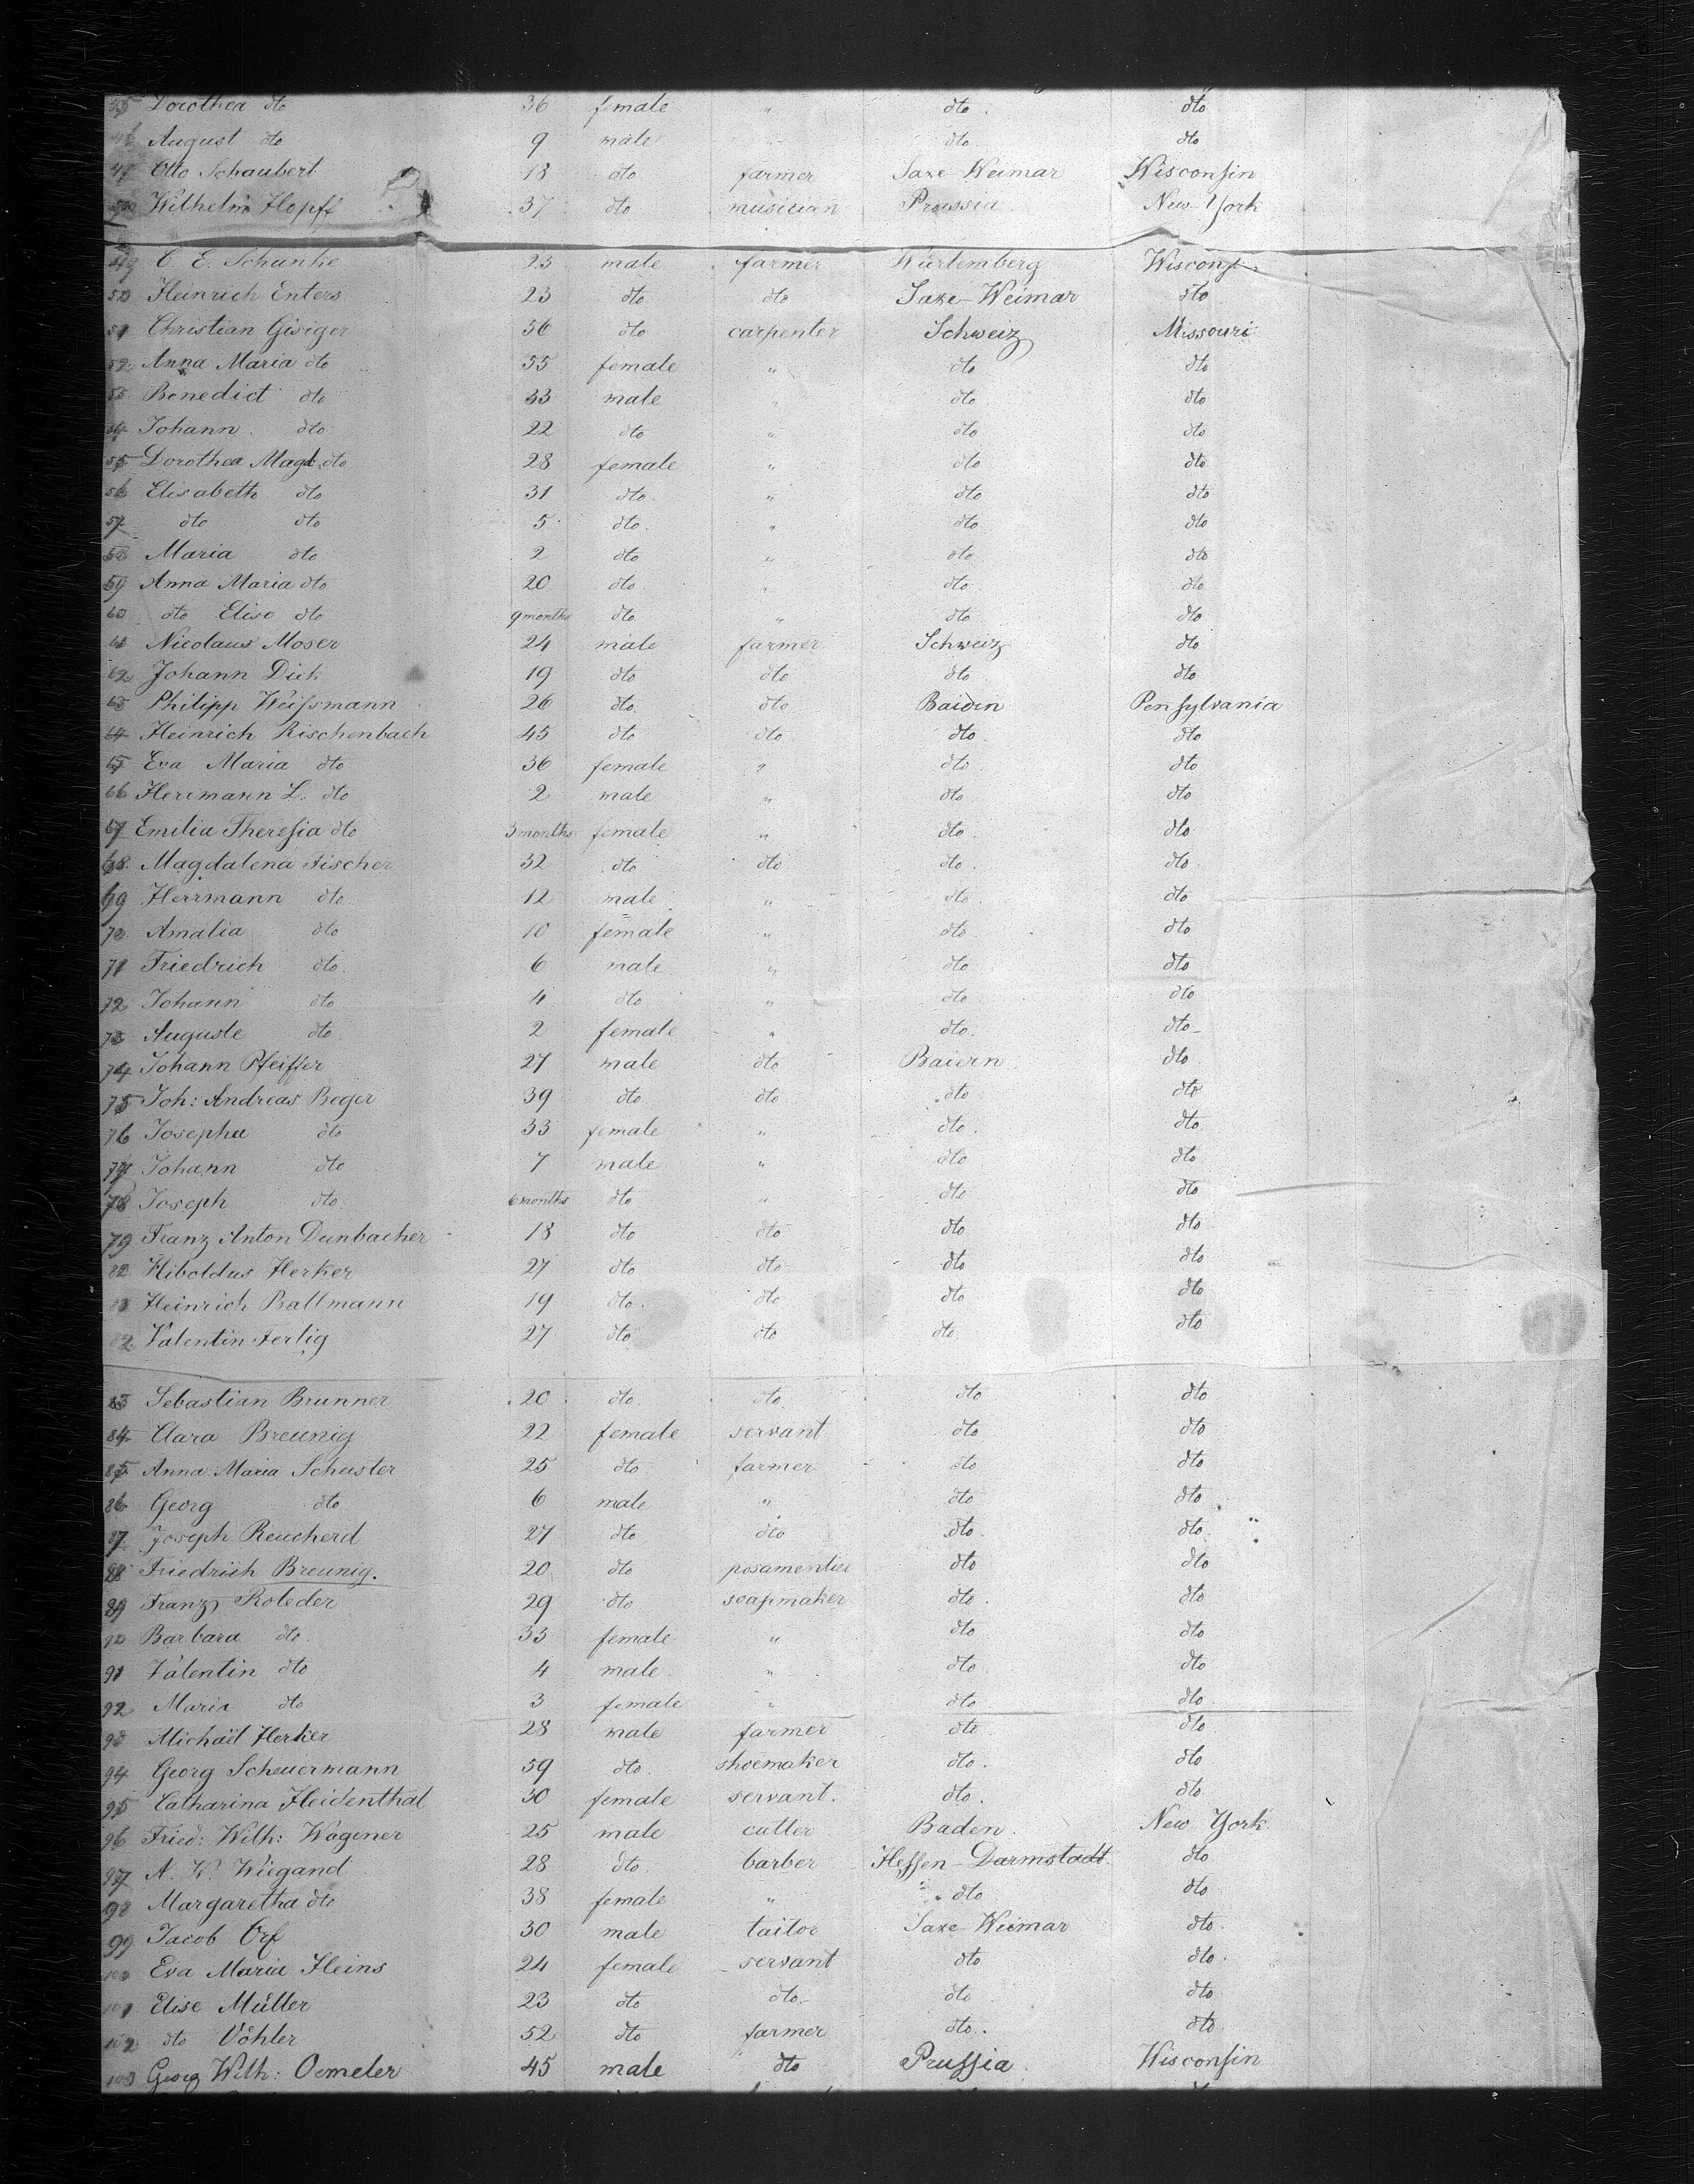 45 Dorothea dto 36 female " dto dto
46 August dto 9 male " dto dto
47 Otto Schaubert 18 dto farmer Saxe Weimar Wisconsin
Wilhelm Hopff 37 dto musician Prussia New York
49 C. E. Schunke 23 male farmer Würtemberg Wisconsin
50 Heinrich Enters 23 dto dto Saxe-Weimar dto
51 Christian Gisiger 56 dto carpenter Schweiz Missouri
52 Anna Maria dto 55 female " dto dto
53 Benedict dto 33 male " dto dto
54 Johann dto 22 dto " dto dto
55 Dorothea Magd. dto 28 female " dto dto
56 Elisabeth dto 31 dto " dto dto
57 dto dto 5 dto " dto dto
58 Maria dto 2 dto " dto dto
59 Anna Maria dto 20 dto " dto dto
60 dto Elise dto 9 months dto " dto dto
61 Nicolaus Moser 24 male farmer Schweiz dto
62 Johann Dick 19 dto dto dto dto
63 Philipp Weissmann 26 dto dto Baiern Pensylvania
64 Heinrich Rischenbach 45 dto dto dto dto
65 Eva Maria dto 36 female " dto dto
66 Herrmann L. dto 2 male " dto dto
67 Emilia Theresia dto 3 months female " dto dto
68 Magdalena Fischer 32 dto dto dto dto
69 Herrmann dto 12 male " dto dto
70 Amalia dto 10 female " dto dto
71 Friedrich dto 6 male " dto dto
72 Johann dto 4 dto " dto dto
73 Auguste dto 2 female " dto dto
74 Johann Pfeiffer 27 male dto Baiern dto
75 Joh: Andreas Beger 39 dto dto dto dto
76 Josepha dto 33 female " dto dto
77 Johann dto 7 male " dto dto
78 Joseph dto 6 months dto " dto dto
79 Franz Anton Dunbacher 18 dto dto dto dto
80 Hiboldus Herker 27 dto dto dto dto
81 Heinrich Ballmann 19 dto dto dto dto
82 Valentin Fertig 27 dto dto dto dto
83 Sebastian Brunner 20 dto dto dto dto
84 Clara Breunig 22 female servant dto dto
85 Anna Maria Schuster 25 dto farmer dto dto
86 Georg dto 6 male " dto dto
87 Joseph Reucherd 27 dto dto dto dto
88 Friedrich Breunig. 20 dto posamentier dto dto
89 Franz Roleder 29 dto soapmaker dto dto
90 Barbara dto 33 female " dto dto
91 Valentin dto 4 male " dto dto
92 Maria dto 3 female " dto dto
93 Michael Herker 28 male farmer dto dto
94 Georg Scheuermann 59 dto shoemaker dto dto
95 Catharina Heidenthal 30 female servant. dto dto
96 Fried: Wilh: Wagener 25 male cutler Baden New York
97 A. W. Wiegand 28 dto barber Hessen-Darmstadt dto
98 Margaretha dto 38 female " dto dto
99 Jacob Orf 30 male tailor Saxe Weimar dto
100 Eva Maria Heins 24 female servant dto dto
101 Elise Müller 23 dto dto dto dto
102 dto Vöhler 52 dto farmer dto dto
103 Georg Wilh: Oemeler 45 male dto Prussia Wisconsin